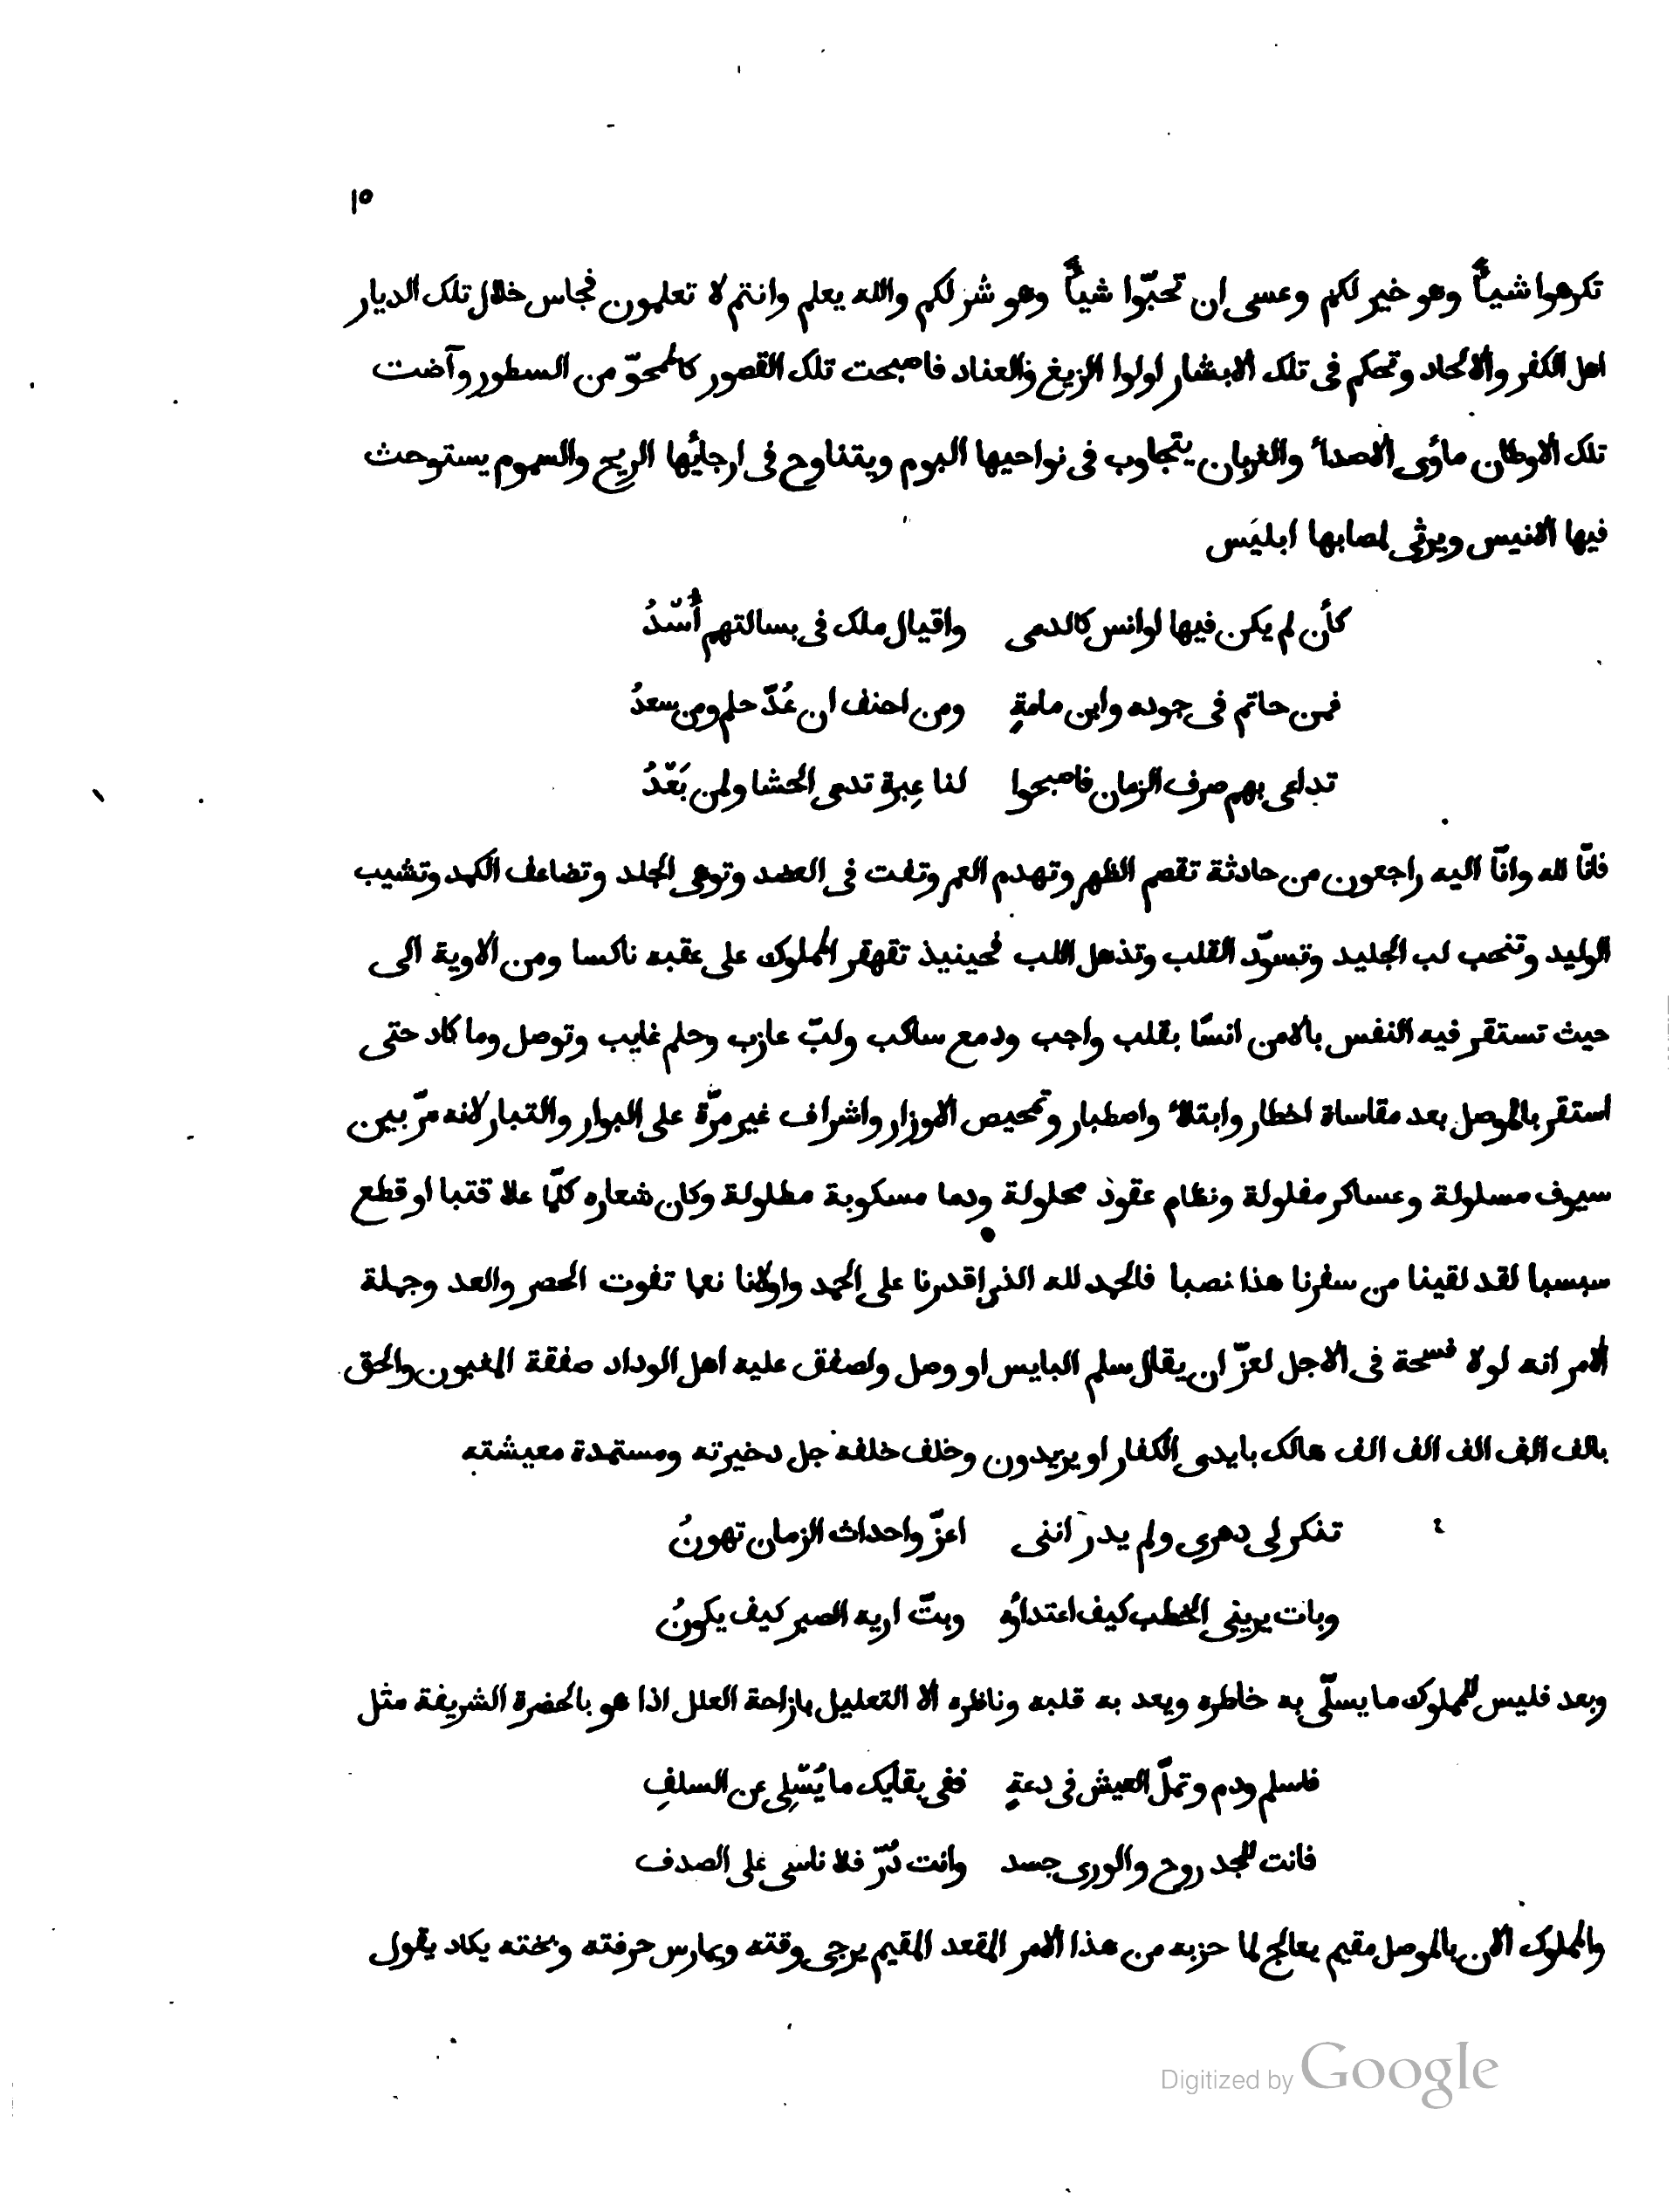 ١٥
تكرهوا شيأً وهو خير لكم وعسى ان تحبّوا شيأً وهو شر لكم والله يعلم وانتم لا تعلمون فجاس خلال تلك الديار
اهل الكفر والالحاد وتحكم فى تلك الابشار اولوا الزيغ والعناد فاصبحت تلك القصور كالممحوّ من السطور وآضت
تلك الاوطان مأوى الاصداء والغربان يتجاوب فى نواحيها البوم ويتناوح فى ارجائها الريح والسموم يستوحش
فيها الانيس ويرثى لمصابها ابليس
كأن لم يكن فيها اوانس كالدمى واقيال ملك فى بسالتهم أُسْدُ
فمن حاتم فى جوده وابن مامةٍ ومن احنف ان عُدّ حلم ومن سعدُ
تداعى بهم صرف الزمان فاصبحوا لنا عِبرة تدمى الحشا ولمن بَعْدُ
فانّا لله وانّا اليه راجعون من حادثة تقصم الظهر وتهدم العمر وتفت فى العضد وتوهى الجلد وتضاعف الكمد وتشيب
الوليد وتنخب لب الجليد وتسوّد القلب وتذهل اللب فحينيذ تقهقر المملوك على عقبه ناكسا ومن الاوبة الى
حيث تستقر فيه النفس بالامن انسًا بقلب واجب ودمع ساكب ولبّ عازب وحلم غايب وتوصل وما كاد حتى
استقر بالموصل بعد مقاساة اخطار وابتلاء واصطبار وتمحيص الاوزار واشراف غير مرّة على البوار والتبار لانه مرّ بين
سيوف مسلولة وعساكر مفلولة ونظام عقود محلولة ودما مسكوبة مطلولة وكان شعاره كلّما علا قتبا او قطع
سبسبا لقد لقينا من سفرنا هذا نصبا فالحمد لله الذى اقدرنا على الحمد واولانا نعما تفوت الحصر والعد وجملة
الامر انه لولا فسحة فى الاجل لعزّ ان يقال سلم البايس او وصل ولصفق عليه اهل الوداد صفقة المغبون والحق
بالف الف الف الف الف هالك بايدى الكفار او يزيدون وخلف خلفه جل دخيرته ومستمدة معيشته
تنكر لى دهرى ولم يدر اننى اعزّ واحداث الزمان تهونُ
وبات يرينى الخطب كيف اعتداؤه وبتّ اريه الصبر كيف يكونُ
وبعد فليس للمملوك ما يسلّى به خاطره ويعد به قلبه وناظره الا التعليل بازاحة العلل اذا هو بالحضرة الشريفة مثل
فاسلم ودم وتملّ العيش فى دعةٍ ففى بقايك ما يُسْلِى عن السلفِ
فانت للمجد روح والورى جسد وانت دُرّ فلا ناسى على الصدف
والمملوك الان بالموصل مقيم يعالج لما حزبه من هذا الامر المقعد المقيم يزجى وقته ويمارس حرفته وبخته يكاد يقول
Digitized by Google